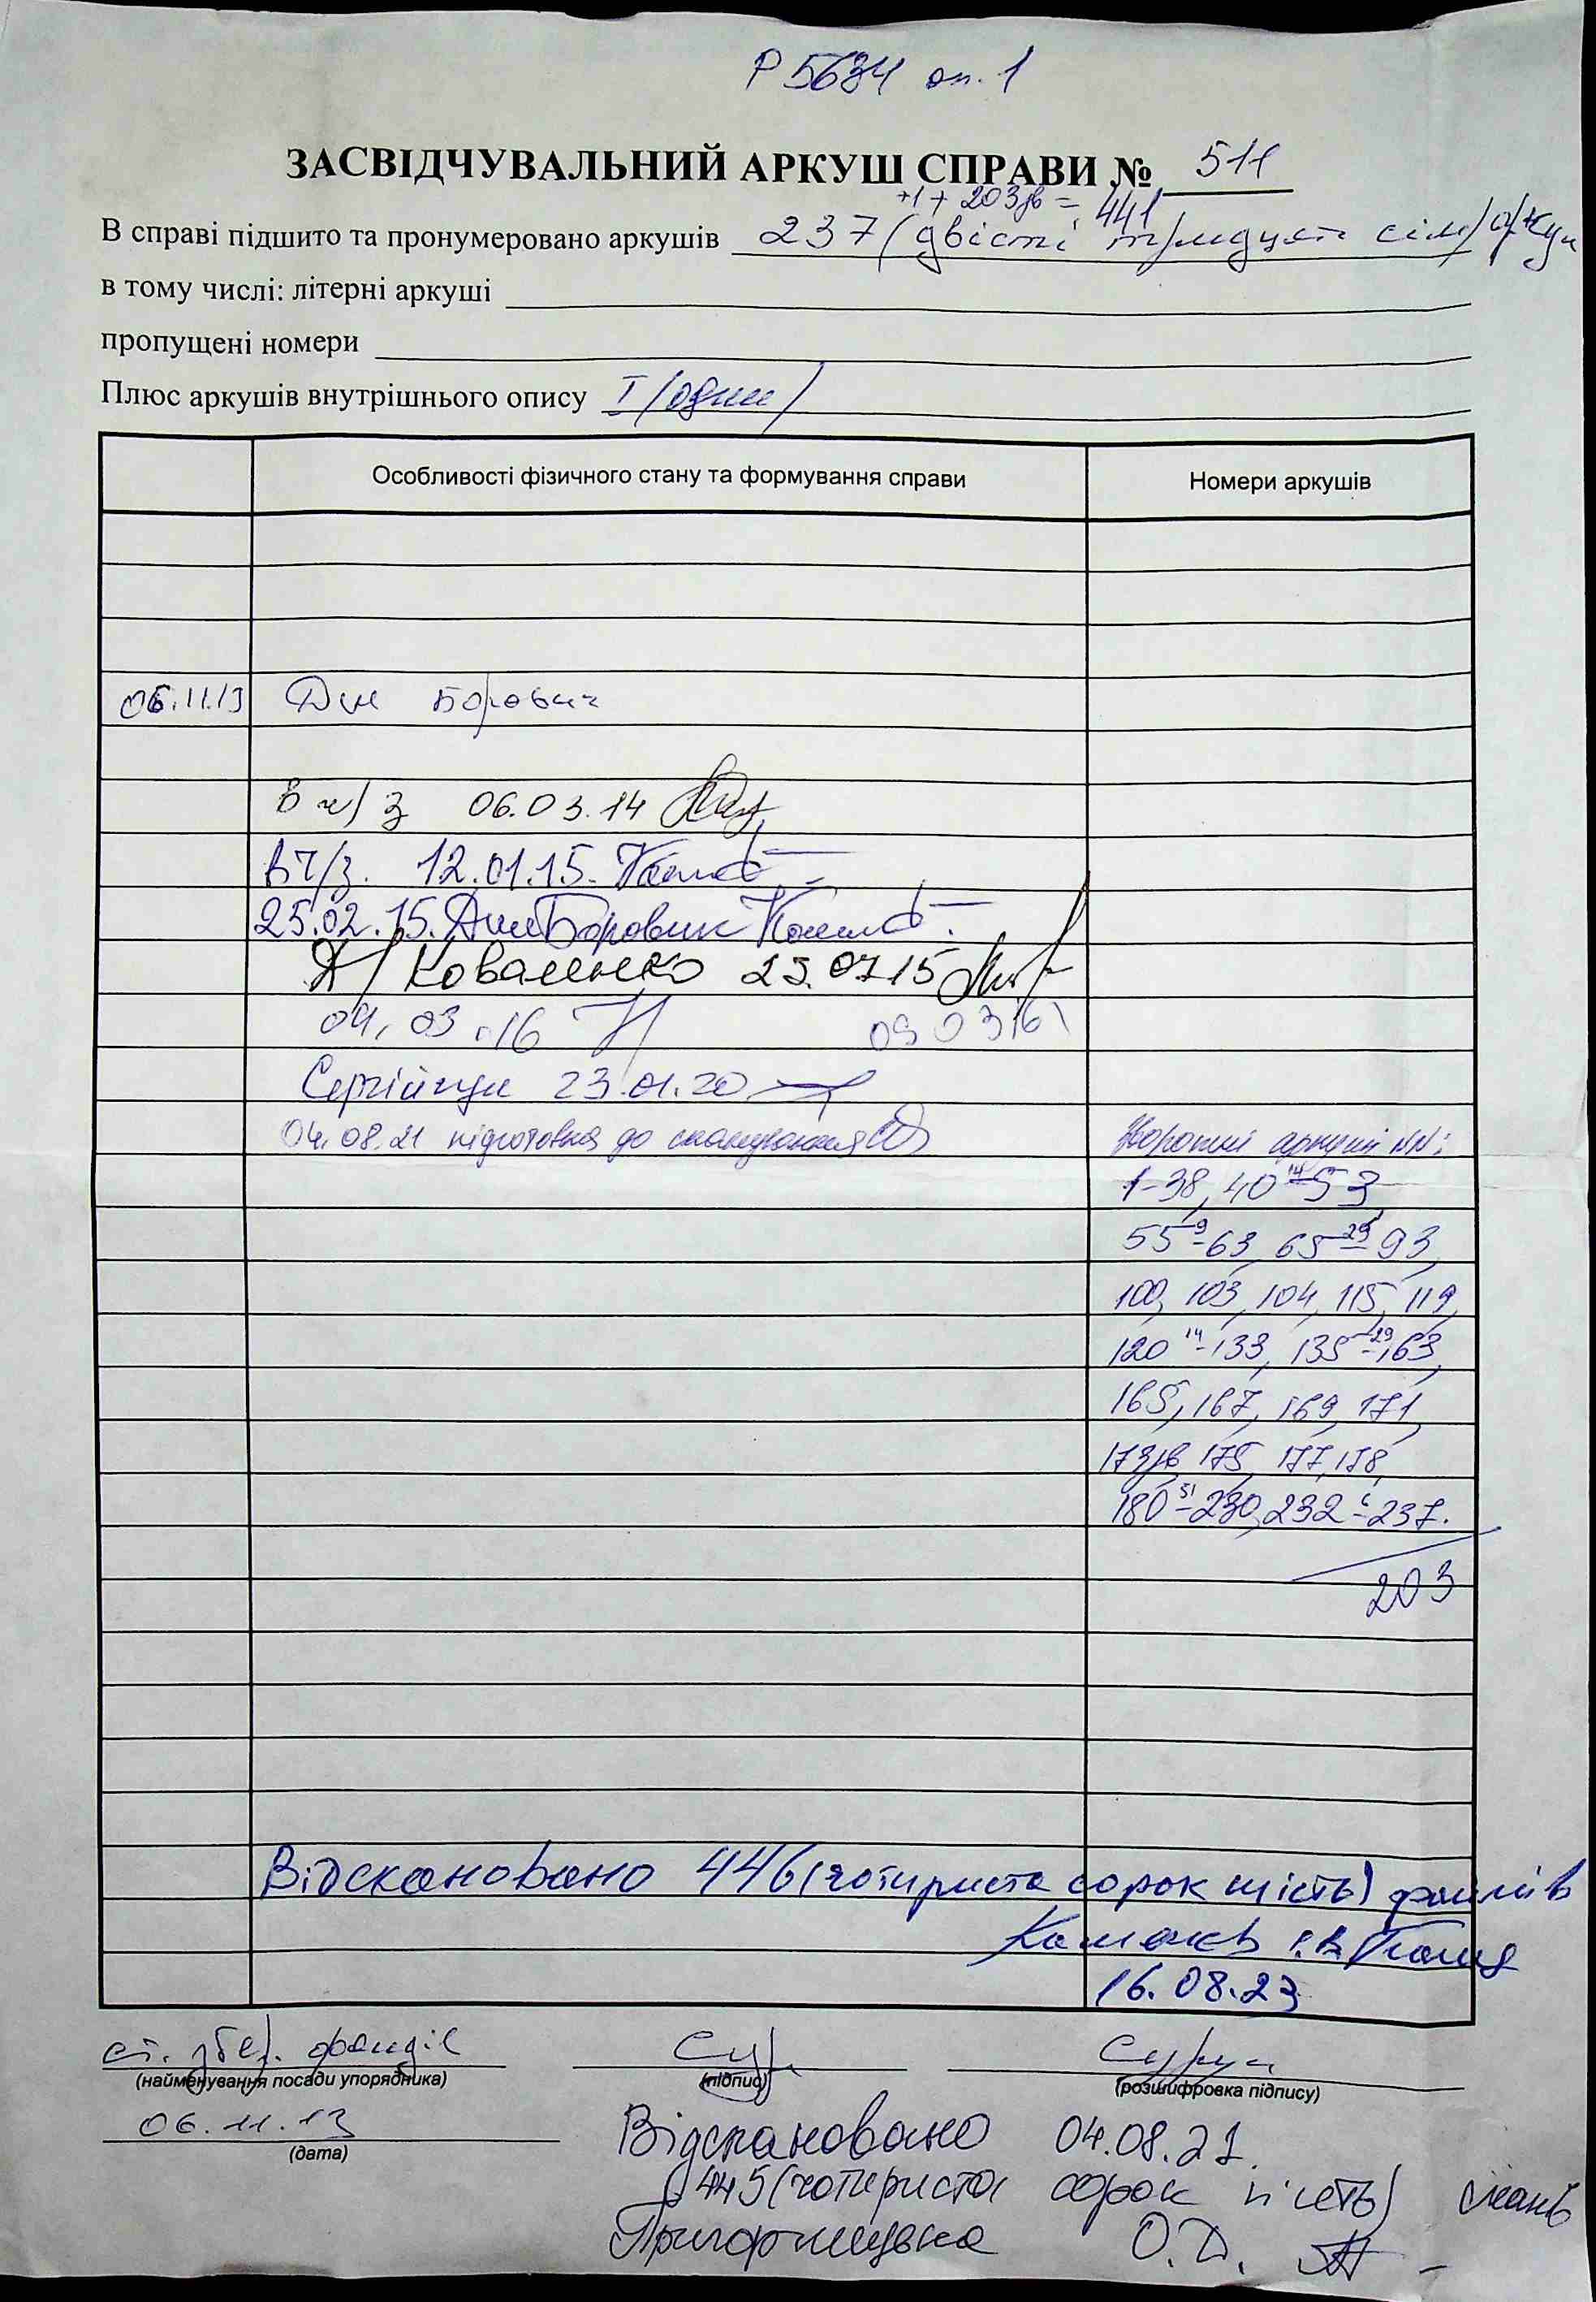 Р 5634 оп. 1
ЗАСВІДЧУВАЛЬНИЙ АРКУШ СПРАВИ № 511
+1 + 203зв = 441
В справі підшито та пронумеровано аркушів 237 (двісті тридцять сім)
в тому числі: літерні аркуші
пропущені номери
Плюс аркушів внутрішнього опису I (один)
Особливості фізичного стану та формування справи Номери аркушів
06.11.13 Боровик
в ч/з 06.03.14
в ч/з. 12.01.15.
25.02.15. Боровик
Коваленко 23.07.15
04.03.16 09 03 16
Сергійчук 23.01.20
04.08.21 підготовка до сканування Зворотні аркуші №№:
1-38, 40 14 - 53,
55 9 - 63, 65 29 - 93,
100, 103, 104, 115, 119,
120 14 - 133, 135 29 - 163,
165, 167, 169, 171,
173зв 175, 177, 178,
180 51 - 230, 232 6 - 237.
203
Відскановано 446 (чотириста сорок шість) файлів
16.08.23
ст. збер. фондів
(найменування посади упорядника) (підпис) (розшифровка підпису)
06.11.13
(дата)
Відскановано 04.08.21.
445 (чотириста сорок п'ять) сканів
О.Д.